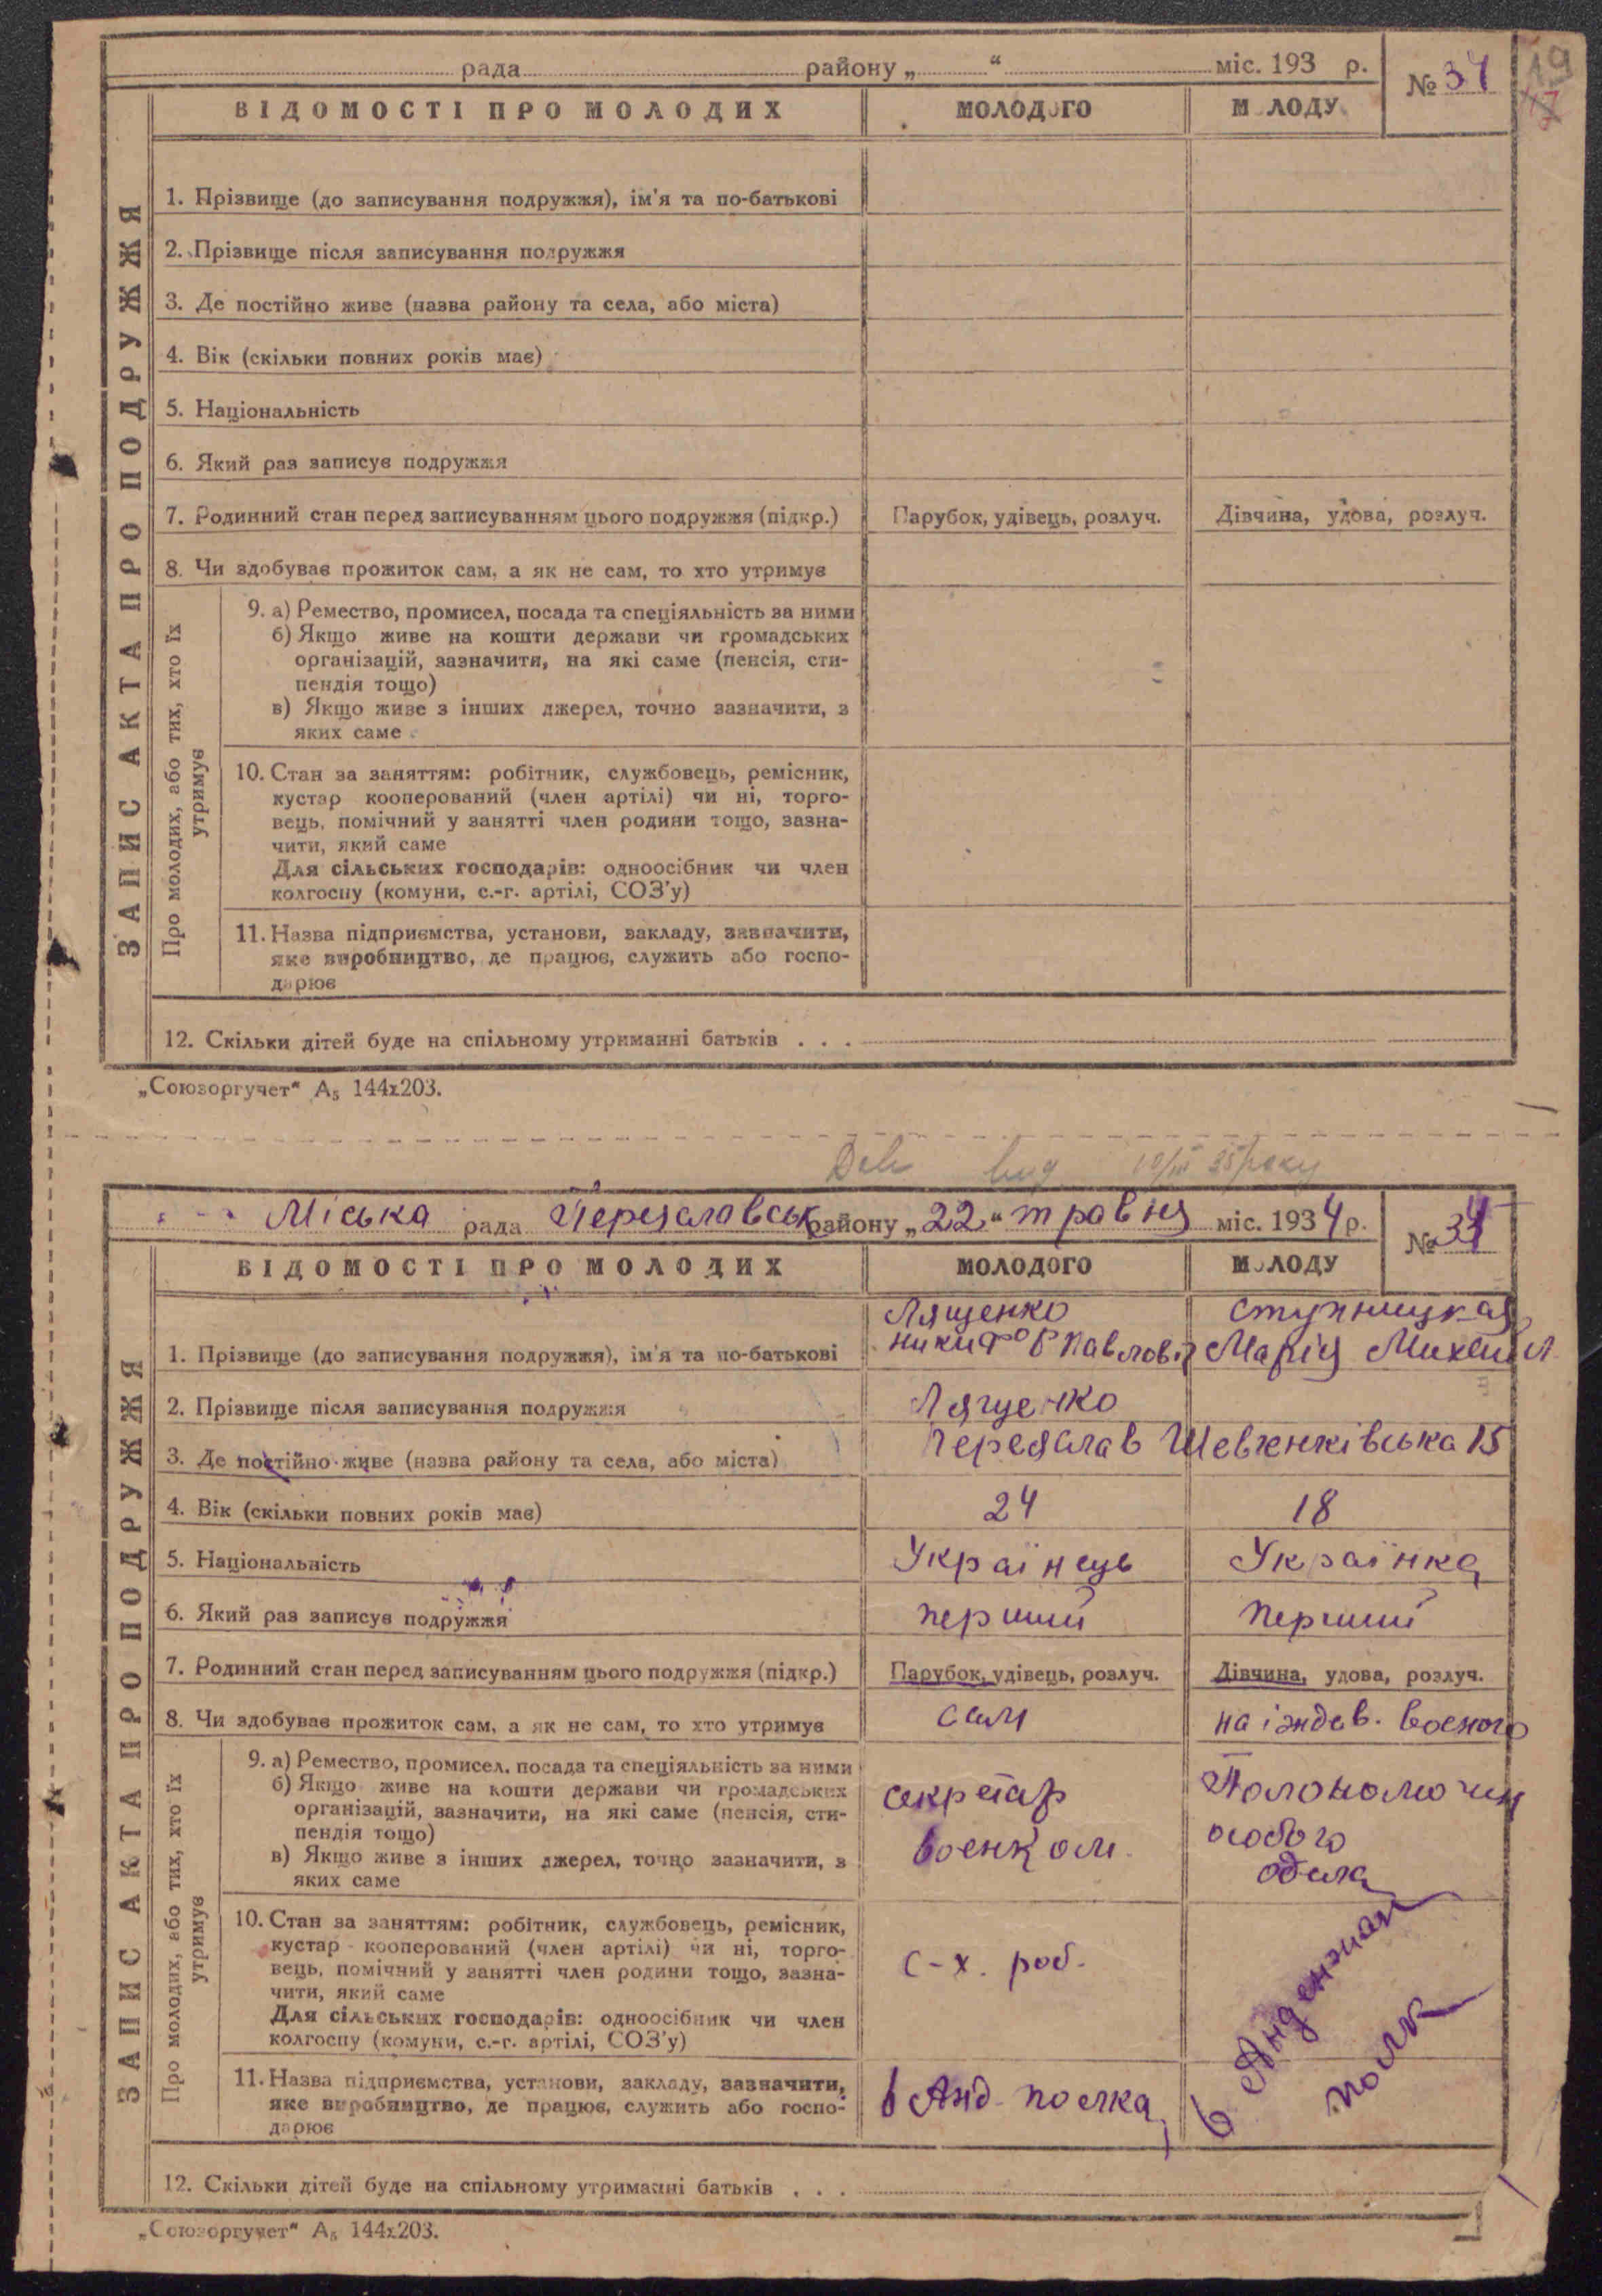 рада району „ “ міс. 193 р.
№ 34
19
ВІДОМОСТІ ПРО МОЛОДИХ МОЛОДОГО МОЛОДУ
ЗАПИС АКТА ПРО ПОДРУЖЖЯ
1. Прізвище (до записування подружжя), ім'я та по-батькові
2. Прізвище після записування подружжя
3. Де постійно живе (назва району та села, або міста)
4. Вік (скільки повних років має)
5. Національність
6. Який раз записує подружжя
7. Родинний стан перед записуванням цього подружжя (підкр.) Парубок, удівець, розлуч. Дівчина, удова, розлуч.
8. Чи здобуває прожиток сам, а як не сам, то хто утримує
Про молодих, або тих, хто їх
утримує
9. а) Ремество, промисел, посада та спеціяльність за ними
б) Якщо живе на кошти держави чи громадських
організацій, зазначити, на які саме (пенсія, сти-
пендія тощо)
в) Якщо живе з інших джерел, точно зазначити, з
яких саме
10. Стан за заняттям: робітник, службовець, ремісник,
кустар кооперований (член артілі) чи ні, торго-
вець, помічний у занятті член родини тощо, зазна-
чити, який саме
Для сільських господарів: одноосібник чи член
колгоспу (комуни, с.-г. артілі, СОЗ'у)
11. Назва підприємства, установи, закладу, зазначити,
яке виробництво, де працює, служить або госпо-
дарює
12. Скільки дітей буде на спільному утриманні батьків . . .
„Союзоргучет“ А₅ 144х203.
10/III 35 року
Міська рада Переяславськ району „22“ травня міс. 1934 р.
№ 34
ВІДОМОСТІ ПРО МОЛОДИХ МОЛОДОГО МОЛОДУ
ЗАПИС АКТА ПРО ПОДРУЖЖЯ
Лященко Ступницкая
1. Прізвище (до записування подружжя), ім'я та по-батькові Никифор Павлович Марія Михайл
2. Прізвище після записування подружжя Лященко
3. Де постійно живе (назва району та села, або міста) Переяслав Шевченківська 15
4. Вік (скільки повних років має) 24 18
5. Національність Українець Українка
6. Який раз записує подружжя перший перший
7. Родинний стан перед записуванням цього подружжя (підкр.) Парубок, удівець, розлуч. Дівчина, удова, розлуч.
8. Чи здобуває прожиток сам, а як не сам, то хто утримує сам на іждев. военого
Про молодих, або тих, хто їх
утримує
9. а) Ремество, промисел, посада та спеціяльність за ними
б) Якщо живе на кошти держави чи громадських
організацій, зазначити, на які саме (пенсія, сти-
пендія тощо)
в) Якщо живе з інших джерел, точно зазначити, з
яких саме
секретар
военком.
особого
одила
10. Стан за заняттям: робітник, службовець, ремісник,
кустар кооперований (член артілі) чи ні, торго-
вець, помічний у занятті член родини тощо, зазна-
чити, який саме
Для сільських господарів: одноосібник чи член
колгоспу (комуни, с.-г. артілі, СОЗ'у)
с-х. роб.
11. Назва підприємства, установи, закладу, зазначити,
яке виробництво, де працює, служить або госпо-
дарює
6 Анд. полка
6 Анденжан
полк
12. Скільки дітей буде на спільному утриманні батьків . . .
„Союзоргучет“ А₅ 144х203.